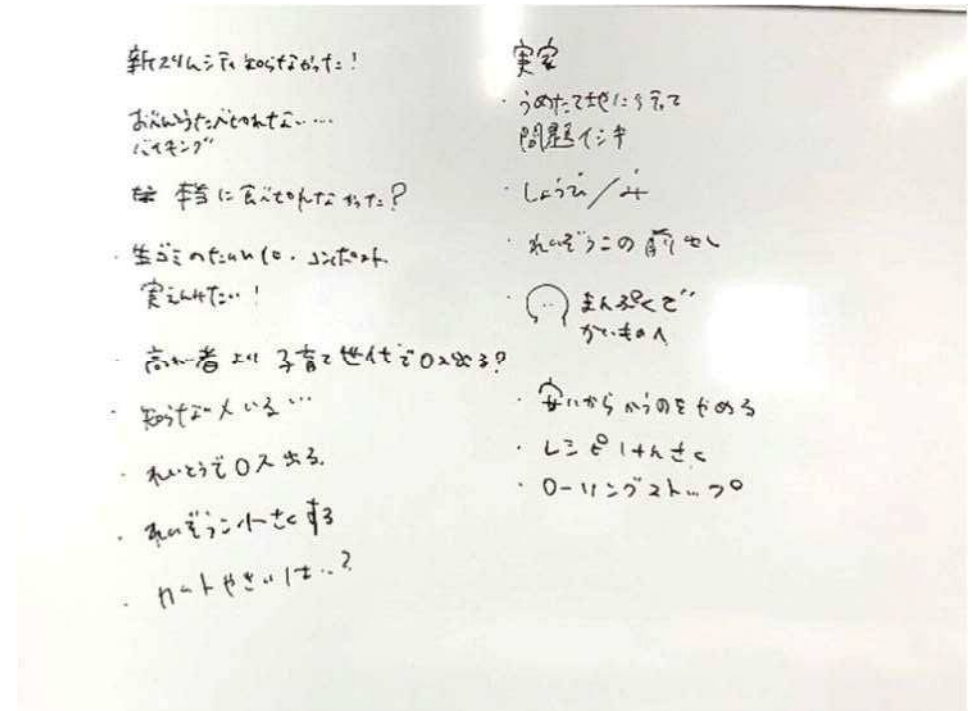 新スリムシティ知らなかった!
おべんとうたべきれない…
バイキング
本当に食べきれなかった?
・生ゴミのたいひ化・コンポスト
実えんみたい!
・高れい者より子育て世代でロス出る?
・知らない人いる…
・れいとうでロス出る.
・れいぞうこ小さくする
・カートやさいは…?
実家
・うめたて地に行って
問題イシキ
・しょうひ/み
・れいぞうこの前出し
・まんぷくで
かいものへ
・安いからかうのをやめる
・レシピけんさく
・ローリングストップ